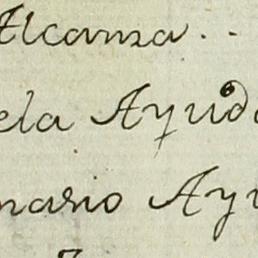 Alcanza..
ela Ayuda
nario Ay